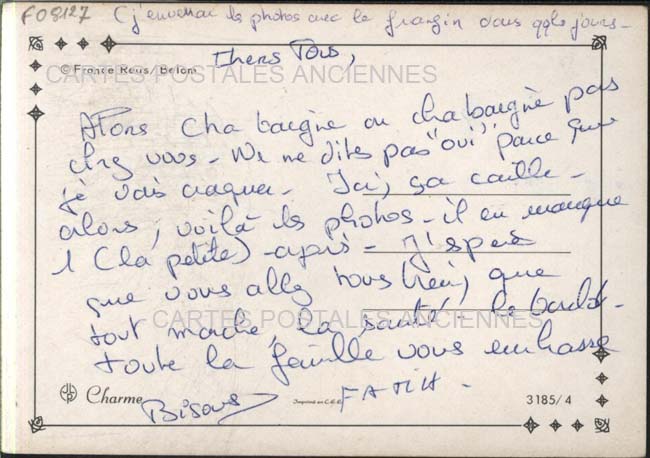 F08127 (j'enverrai les photos avec le frangin dans qqls jours -
Chers Tous,
© France Reus/Belom
CARTES POSTALES ANCIENNES
Alors Cha baigne ou cha baigne pas
chez vous - Ne me dites pas "oui", parce que
je vais craquer - Ici, ça caille -
alors, voilà les photos - il en manque
1 (la petite) - après - J'espère
que vous allez tous bien, que
tout marche, la santé, le boulot -
CARTES POSTALES ANCIENNES
toute la famille vous embrasse
Charme
Bisous
FATIH -
Imprimé en C.E.E.
3185/4